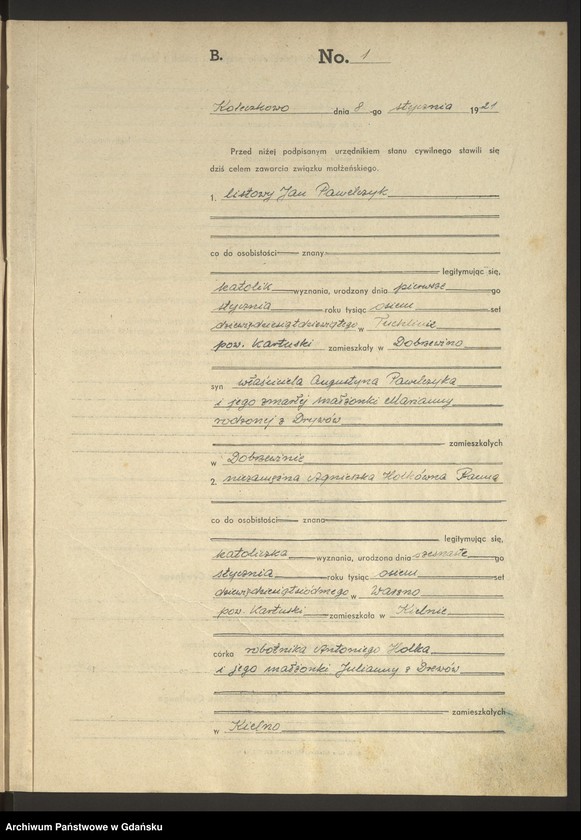 B. No. 1
Koleczkowo dnia 8-go stycznia 1921
Przed niżej podpisanym urzędnikiem stanu cywilnego stawili się
dziś celem zawarcia związku małżeńskiego.
1. listowy Jan Pawelczyk
co do osobistości znany
legitymując się,
katolik wyznania, urodzony dnia pierwsze go
stycznia roku tysiąc osiem set
dziewięćdziesiątdziewiątego w Tuchlinie
pow. Kartuski zamieszkały w Dobrzewino
syn właściciela Augustyna Pawelczyka
i jego zmarłej małżonki Marianny
rodzonej z Drywów
zamieszkałych
w Dobrzewinie
2. niezamężna Agnieszka Holkówna Panna
co do osobistości znana
legitymując się,
katoliczka wyznania, urodzona dnia szesnaste go
stycznia roku tysiąc osiem set
dziewięćdziesiątsiódmego w
pow. Kartuski zamieszkała w Kielnie
córka robotnika Antoniego Holka
i jego małżonki Julianny z Drewów
zamieszkałych
w Kielno
Archiwum Państwowe w Gdańsku